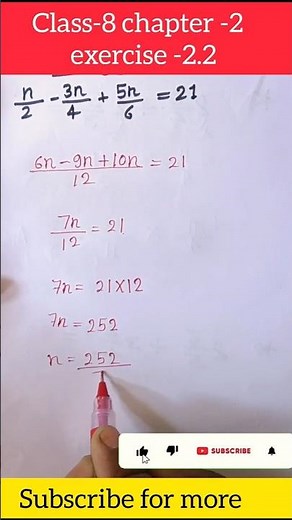 Class-8 chapter -2
exercise -2.2
n/2 - 3n/4 + 5n/6 = 21
6n-9n+10n/12 = 21
7n/12 = 21
7n = 21×12
7n = 252
n = 252/
SUBSCRIBE
Subscribe for more